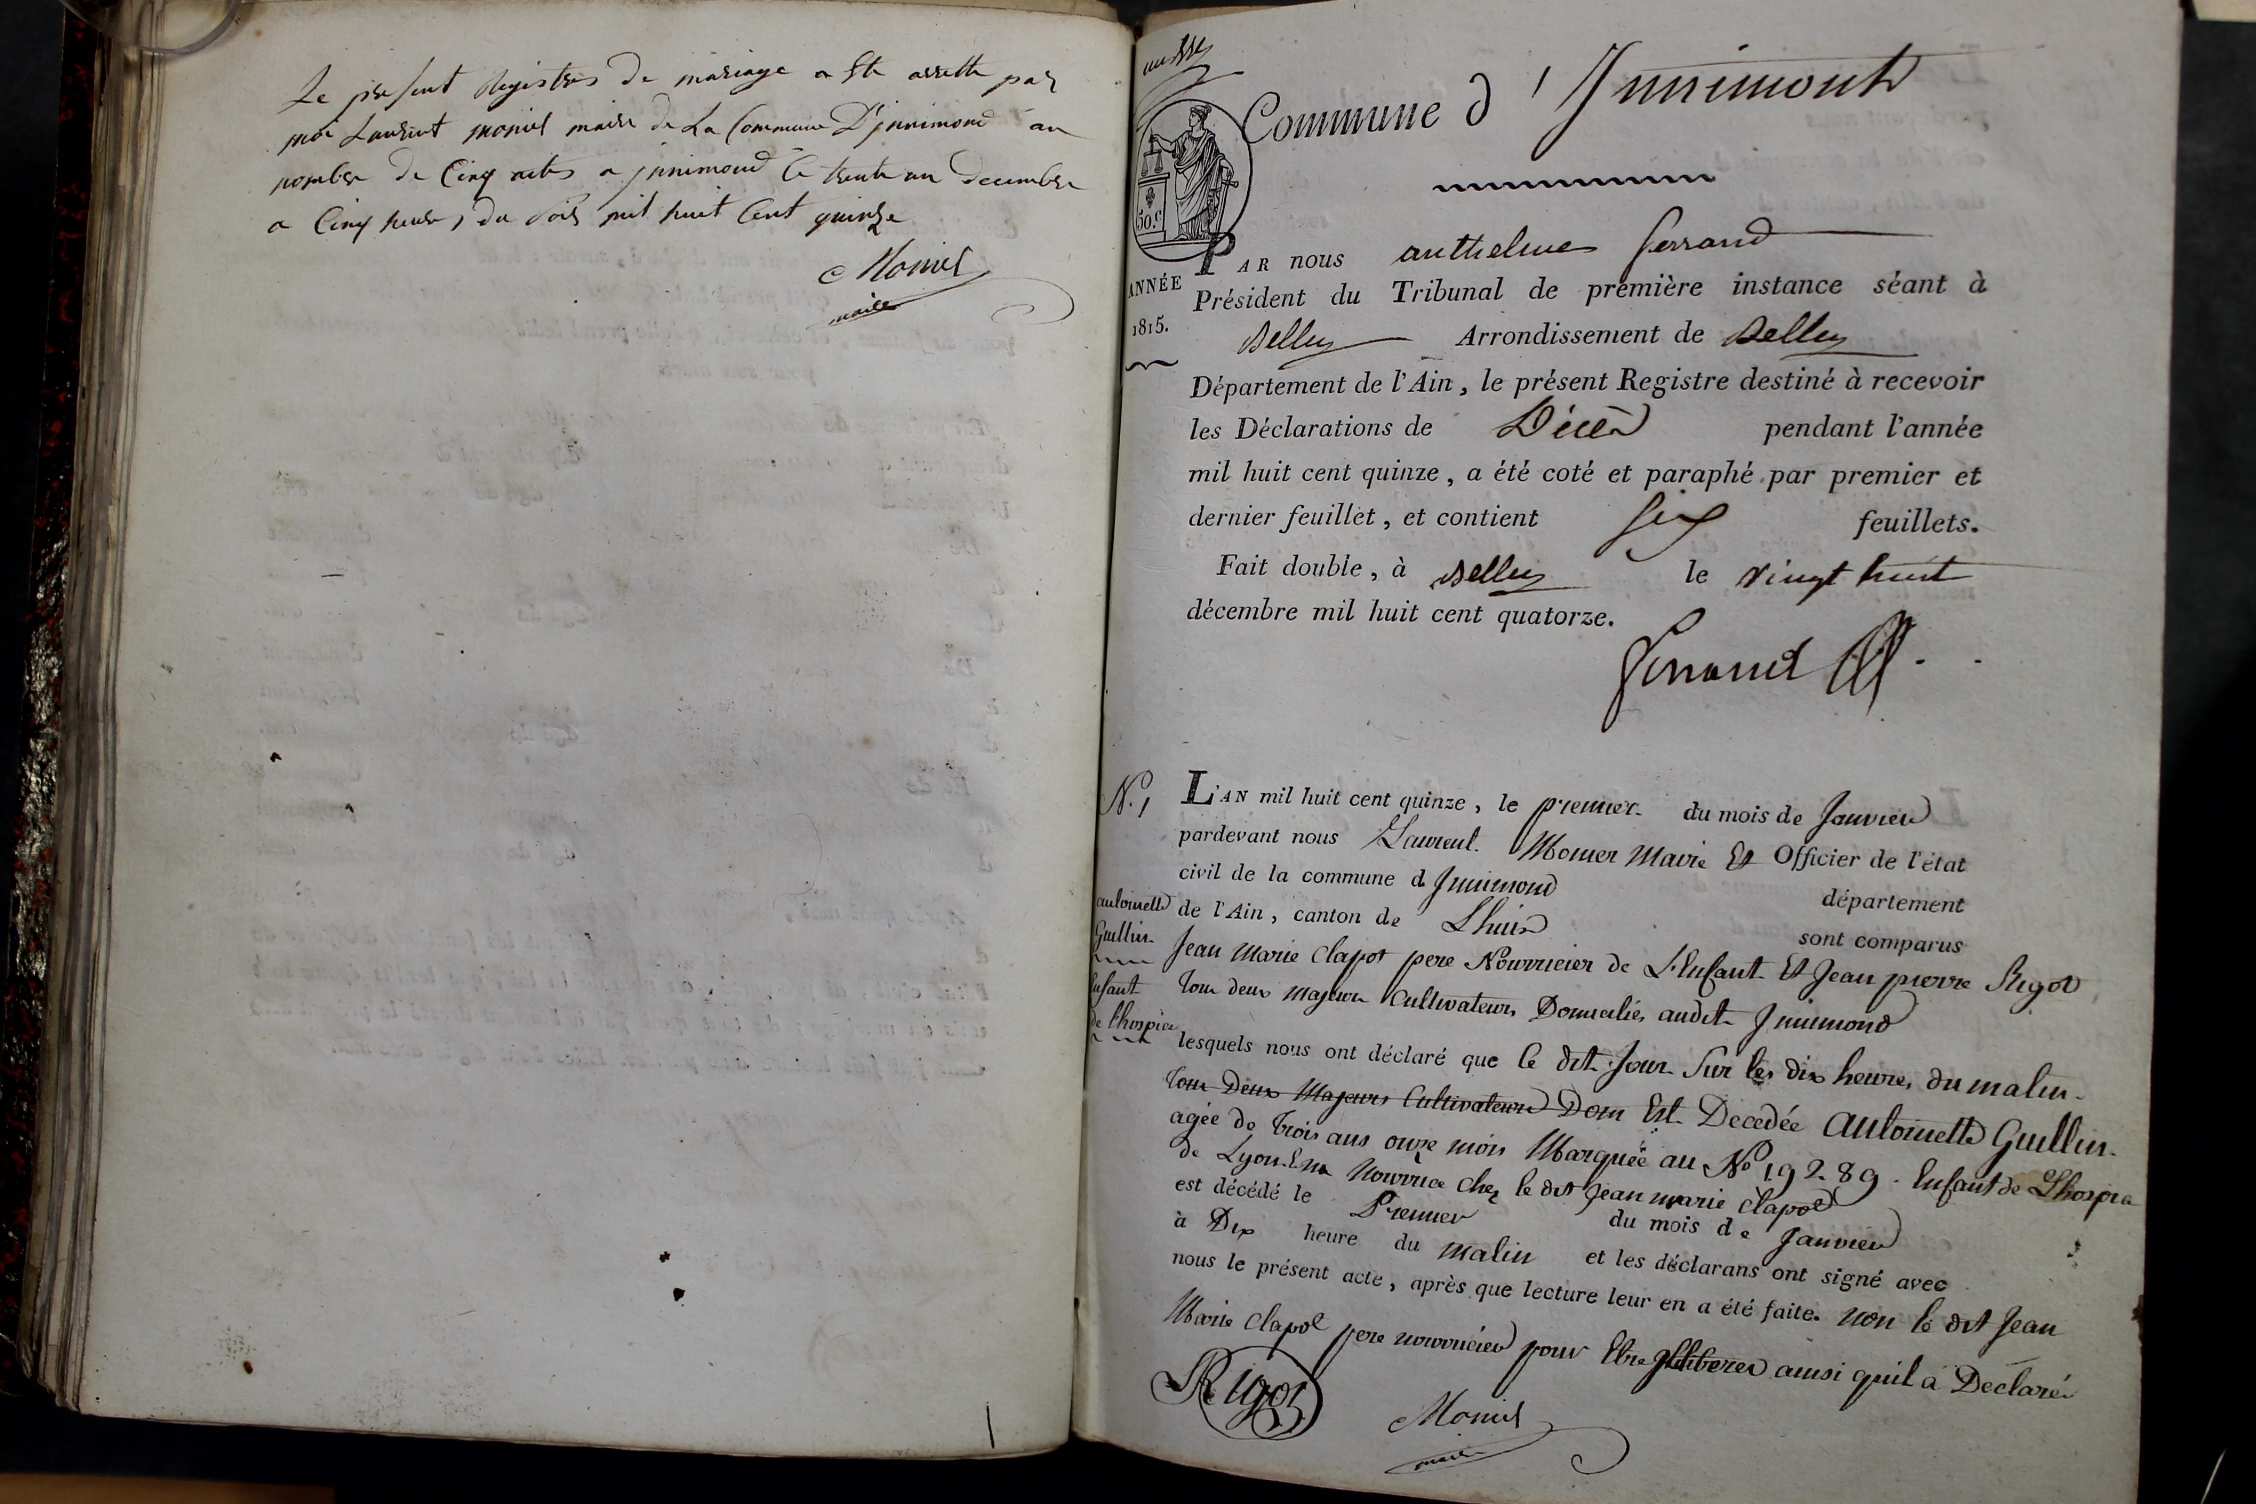 Le present Registres de mariage a Ete arretté par
moi Laurent monier maire de La Commune D'jnnimond au
nombre de Cinq actes a jnnimond le trente un decembre
a Cinq heures du Soir mil huit Cent quinze
Monier
maire
Commune d'Innimont
50.c
ANNÉE
1815.
PAR nous anthelme ferrand
Président du Tribunal de première instance séant à
Belley Arrondissement de Belley
Département de l'Ain, le présent Registre destiné à recevoir
les Déclarations de Décès pendant l'année
mil huit cent quinze, a été coté et paraphé par premier et
dernier feuillet, et contient six feuillets.
Fait double, à Belley le vingt huit
décembre mil huit cent quatorze.
ferrand
N. 1
antoinette
Guillin
Enfant
de l'hospice
L'AN mil huit cent quinze, le premier du mois de Janvier
pardevant nous Laurent Monier Maire Et Officier de l'état
civil de la commune d Jnnimond département
de l'Ain, canton de Lhuis sont comparus
Jean Marie Clapot pere Nourricier de L'Enfant Et Jean pierre Rigot
Tous deux majeurs Cultivateurs Domicilies audit Jnnimond
lesquels nous ont déclaré que le dit Jour Sur les dix heures du matin
Tous Deux Majeurs Cultivateurs Dom Est Decedée Antoinette Guillin
agée de Trois ans onze mois Marquée au No 19289. Enfant de Lhospice
de Lyon En Nourrice chez le dit Jean marie Clapot
est décédé le Premier du mois de Janvier
à Dix heure du matin et les déclarans ont signé avec
nous le présent acte, après que lecture leur en a été faite. non le dit Jean
Marie Clapot pere nourricier pour Etre jlliterer ainsi quil a Declaré
Rigot
Monier
maire